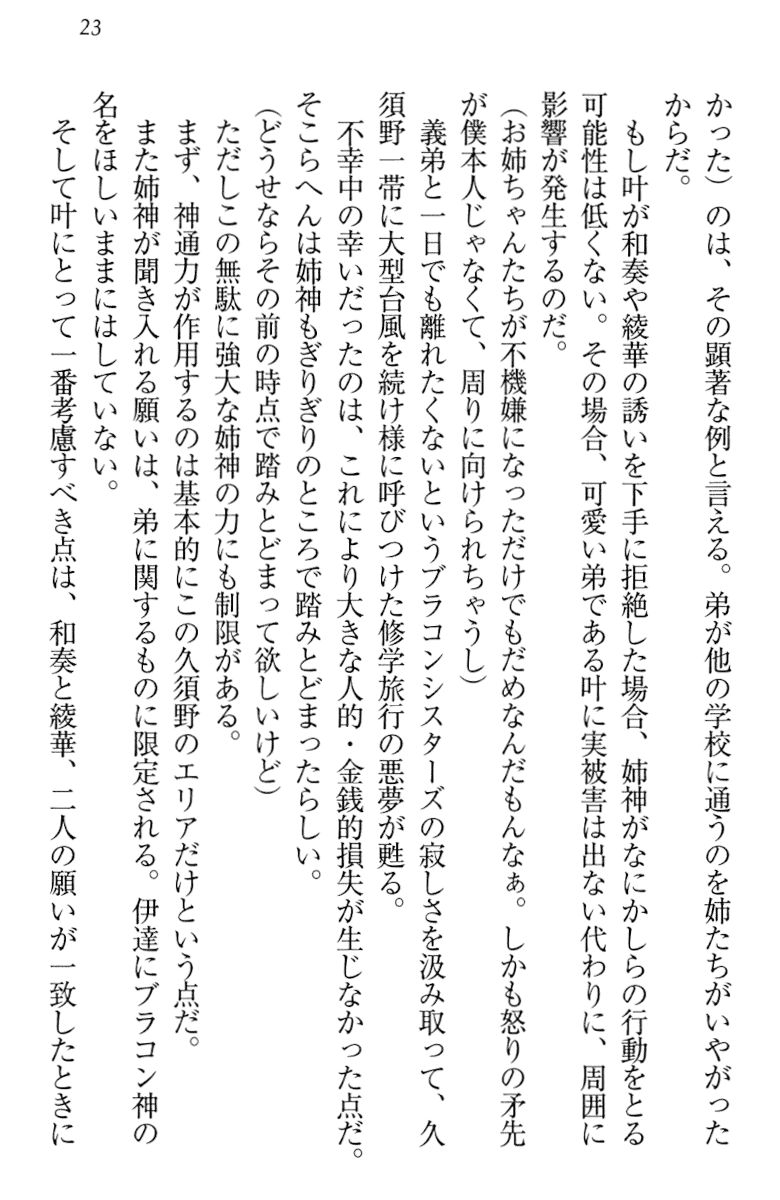 23
かった）のは、その顕著な例と言える。弟が他の学校に通うのを姉たちがいやがった
からだ。
もし叶が和奏や綾華の誘いを下手に拒絶した場合、姉神がなにかしらの行動をとる
可能性は低くない。その場合、可愛い弟である叶に実被害は出ない代わりに、周囲に
影響が発生するのだ。
（お姉ちゃんたちが不機嫌になっただけでもだめなんだもんなぁ。しかも怒りの矛先
が僕本人じゃなくて、周りに向けられちゃうし）
義弟と一日でも離れたくないというブラコンシスターズの寂しさを汲み取って、久
須野一帯に大型台風を続け様に呼びつけた修学旅行の悪夢が甦る。
不幸中の幸いだったのは、これにより大きな人的・金銭的損失が生じなかった点だ。
そこらへんは姉神もぎりぎりのところで踏みとどまったらしい。
（どうせならその前の時点で踏みとどまって欲しいけど）
ただしこの無駄に強大な姉神の力にも制限がある。
まず、神通力が作用するのは基本的にこの久須野のエリアだけという点だ。
また姉神が聞き入れる願いは、弟に関するものに限定される。伊達にブラコン神の
名をほしいままにはしていない。
そして叶にとって一番考慮すべき点は、和奏と綾華、二人の願いが一致したときに